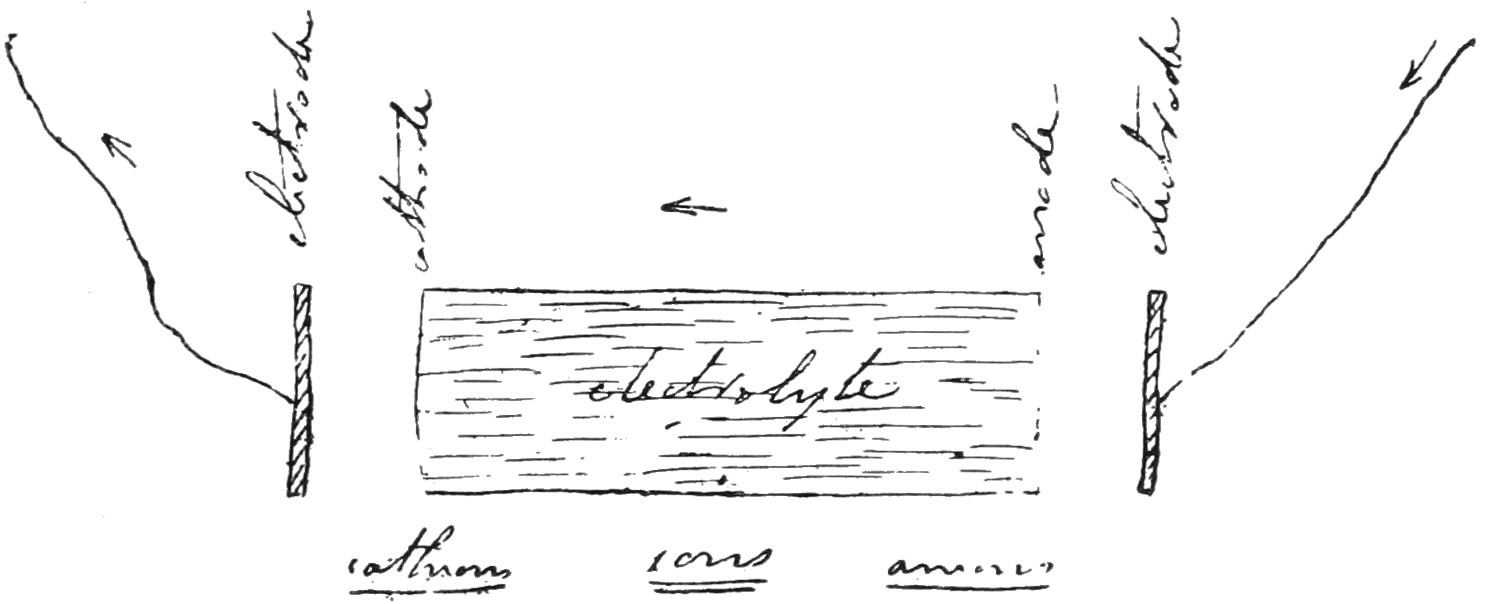 electrode
cathode
anode
electrode
electrolyte
cathions
ions
anions